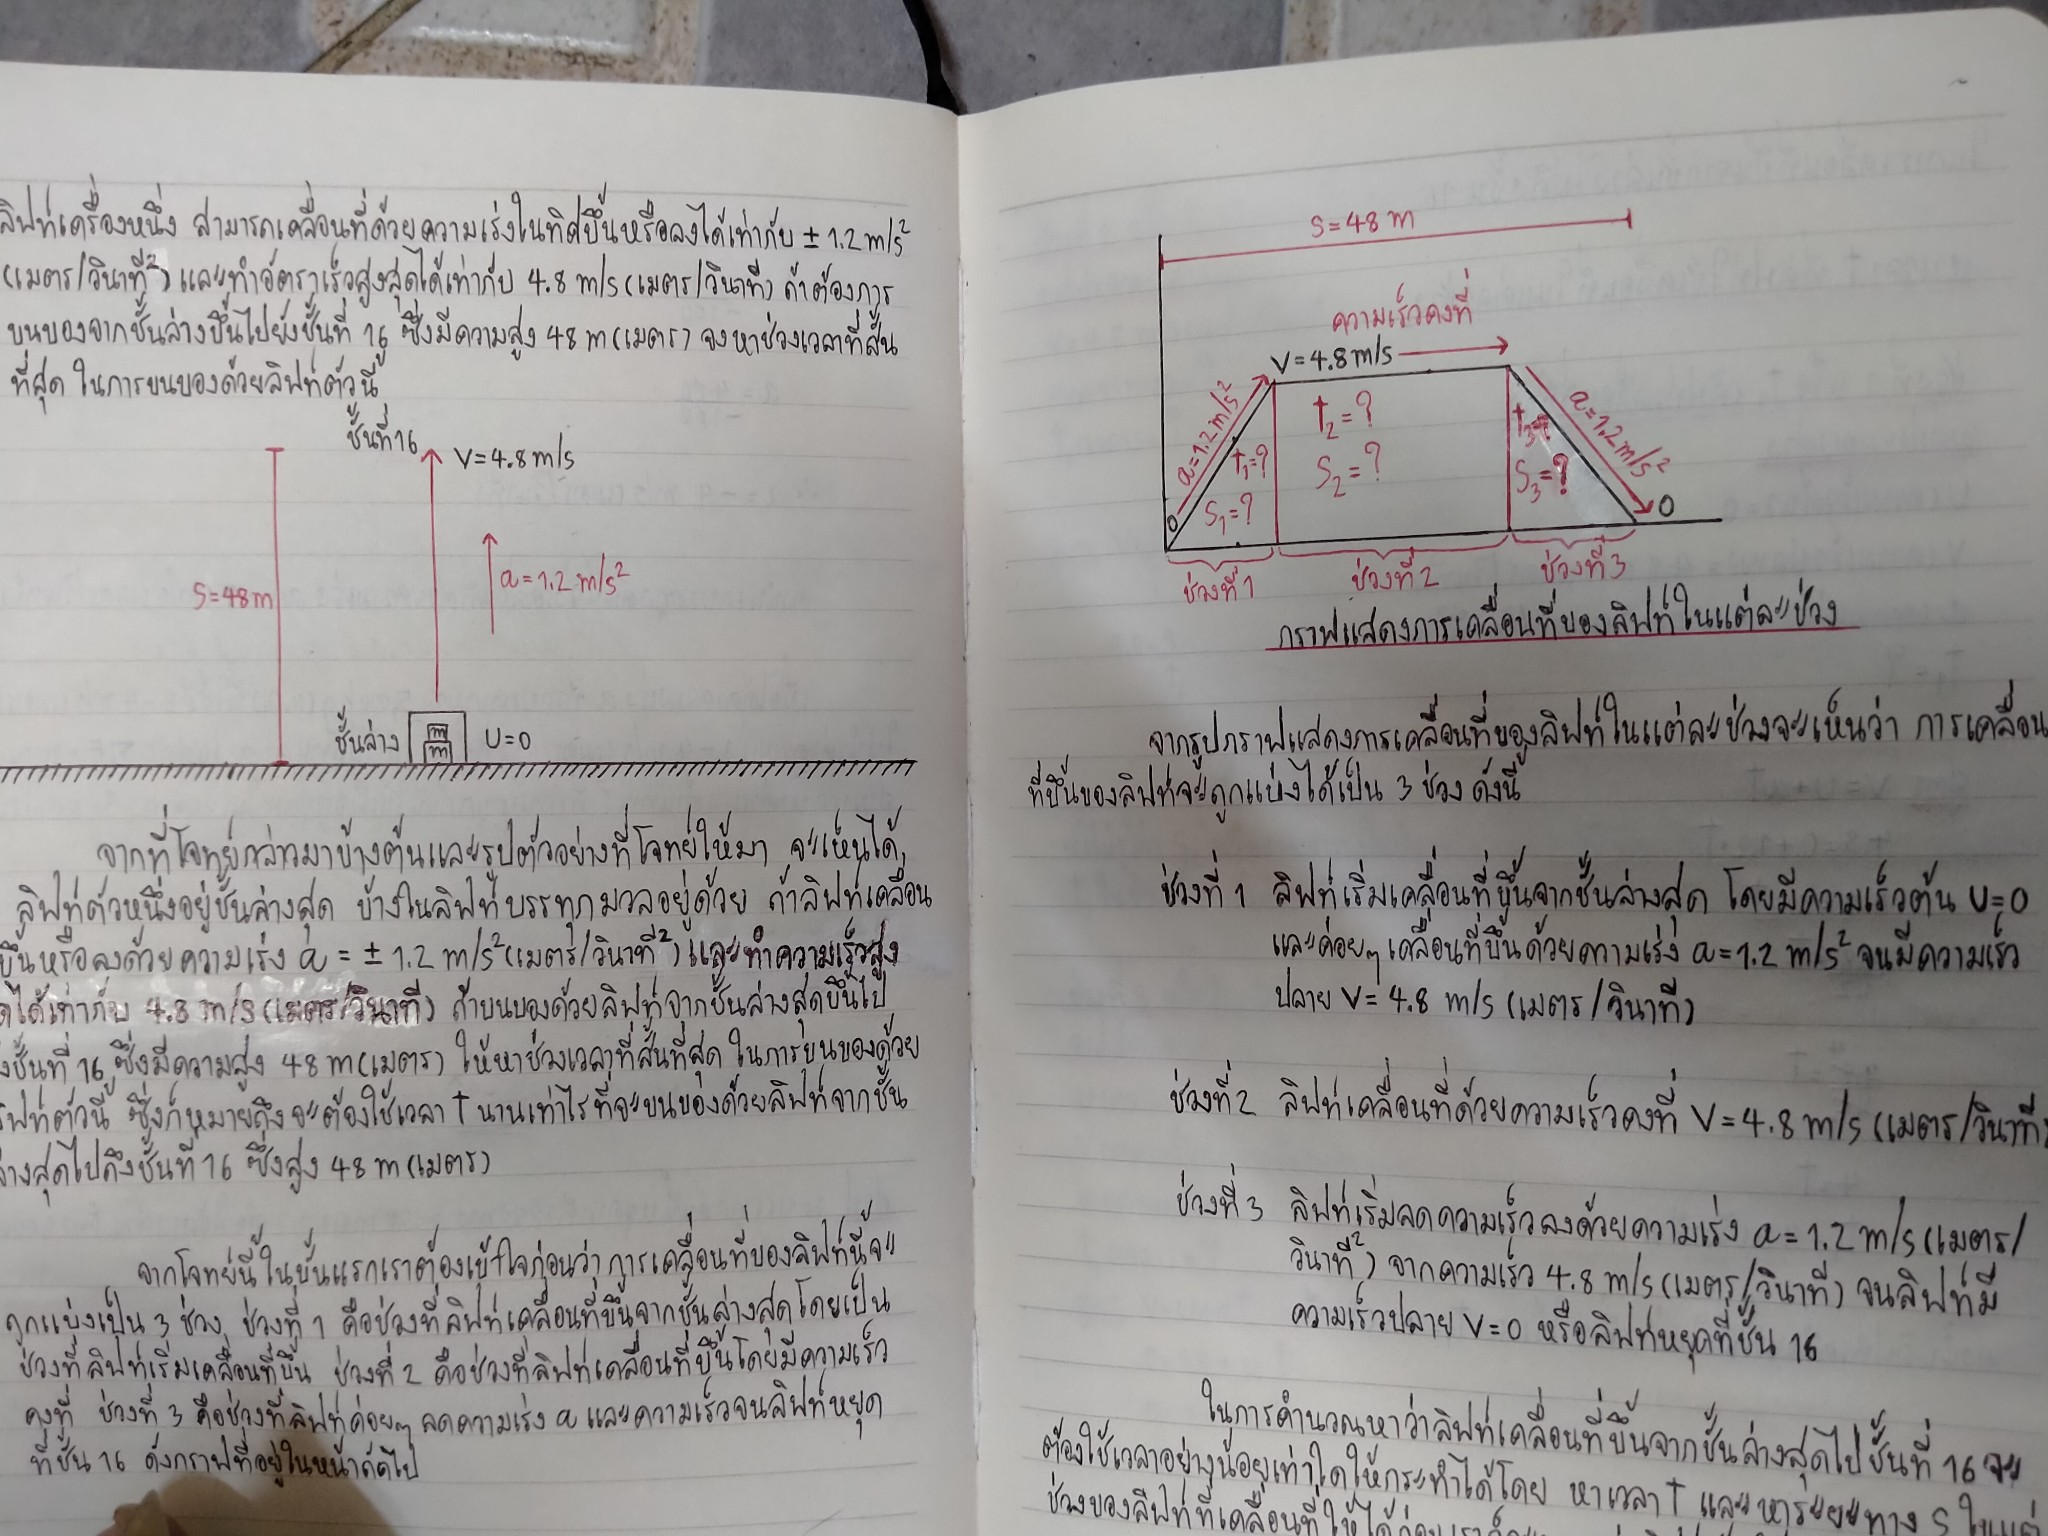 ลิฟท์เครื่องหนึ่ง สามารถเคลื่อนที่ด้วยความเร่งในทิศขึ้นหรือลงได้เท่ากับ ± 1.2 m/s²
(เมตร/วินาที²) และทำอัตราเร็วสูงสุดได้เท่ากับ 4.8 m/s (เมตร/วินาที) ถ้าต้องการ
ขนของจากชั้นล่างขึ้นไปยังชั้นที่ 16 ซึ่งมีความสูง 48 m (เมตร) จงหาช่วงเวลาที่สั้น
ที่สุด ในการขนของด้วยลิฟท์ตัวนี้
ชั้นที่ 16
V = 4.8 m/s
a = 1.2 m/s²
S = 48 m
ชั้นล่าง
m
m
U = 0
จากที่โจทย์กล่าวมาข้างต้นและรูปตัวอย่างที่โจทย์ให้มา จะเห็นได้
ลิฟท์ตัวหนึ่งอยู่ชั้นล่างสุด ข้างในลิฟท์บรรทุกมวลอยู่ด้วย ถ้าลิฟท์เคลื่อน
ขึ้นหรือลงด้วยความเร่ง a = ± 1.2 m/s² (เมตร/วินาที²) และทำความเร็วสูง
ได้เท่ากับ 4.8 m/s (เมตร/วินาที) ถ้าขนของด้วยลิฟท์จากชั้นล่างสุดขึ้นไป
ชั้นที่ 16 ซึ่งมีความสูง 48 m (เมตร) ให้หาช่วงเวลาที่สั้นที่สุด ในการขนของด้วย
ลิฟท์ตัวนี้ ซึ่งก็หมายถึงจะต้องใช้เวลา t นานเท่าไรที่จะขนของด้วยลิฟท์จากชั้น
ล่างสุดไปถึงชั้นที่ 16 ซึ่งสูง 48 m (เมตร)
จากโจทย์นี้ ในขั้นแรกเราต้องเข้าใจก่อนว่า การเคลื่อนที่ของลิฟท์นี้จะ
ถูกแบ่งเป็น 3 ช่วง ช่วงที่ 1 คือช่วงที่ลิฟท์เคลื่อนที่ขึ้นจากชั้นล่างสุดโดยเป็น
ช่วงที่ลิฟท์เริ่มเคลื่อนที่ขึ้น ช่วงที่ 2 คือช่วงที่ลิฟท์เคลื่อนที่ขึ้นโดยมีความเร็ว
คงที่ ช่วงที่ 3 คือช่วงที่ลิฟท์ค่อยๆ ลดความเร่ง a และความเร็วจนลิฟท์หยุด
ที่ชั้น 16 ดังกราฟที่อยู่ในหน้าถัดไป
S = 48 m
ความเร็วคงที่
V = 4.8 m/s
a = 1.2 m/s²
a = 1.2 m/s²
t₁ = ?
S₁ = ?
t₂ = ?
S₂ = ?
t₃ = ?
S₃ = ?
0
0
ช่วงที่ 1
ช่วงที่ 2
ช่วงที่ 3
กราฟแสดงการเคลื่อนที่ของลิฟท์ในแต่ละช่วง
จากรูปกราฟแสดงการเคลื่อนที่ของลิฟท์ในแต่ละช่วงจะเห็นว่า การเคลื่อน
ที่ขึ้นของลิฟท์จะถูกแบ่งได้เป็น 3 ช่วง ดังนี้
ช่วงที่ 1 ลิฟท์เริ่มเคลื่อนที่ขึ้นจากชั้นล่างสุด โดยมีความเร็วต้น U = 0
และค่อยๆ เคลื่อนที่ขึ้นด้วยความเร่ง a = 1.2 m/s² จนมีความเร็ว
ปลาย V = 4.8 m/s (เมตร/วินาที)
ช่วงที่ 2 ลิฟท์เคลื่อนที่ด้วยความเร็วคงที่ V = 4.8 m/s (เมตร/วินาที)
ช่วงที่ 3 ลิฟท์เริ่มลดความเร็วลงด้วยความเร่ง a = 1.2 m/s (เมตร/
วินาที²) จากความเร็ว 4.8 m/s (เมตร/วินาที) จนลิฟท์มี
ความเร็วปลาย V = 0 หรือลิฟท์หยุดที่ชั้น 16
ในการคำนวณหาว่าลิฟท์เคลื่อนที่ขึ้นจากชั้นล่างสุดไปชั้นที่ 16 จะ
ต้องใช้เวลาอย่างน้อยเท่าใดให้กระทำได้โดย หาเวลา t และหาระยะทาง S ในแต่
ช่วงของลิฟท์ที่เคลื่อนที่ให้ได้ก่อน